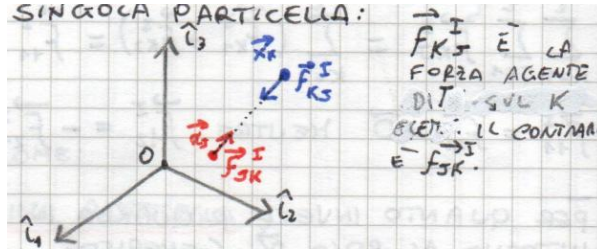 SINGOLA PARTICELLA:
î₃
x⃗ₖ
f⃗ᴵ_KJ
x⃗_J
f⃗ᴵ_JK
O
î₁
î₂
f⃗ᴵ_KJ È LA
FORZA AGENTE
DI J SUL K
ELEM. IL CONTRAR
È f⃗ᴵ_JK.